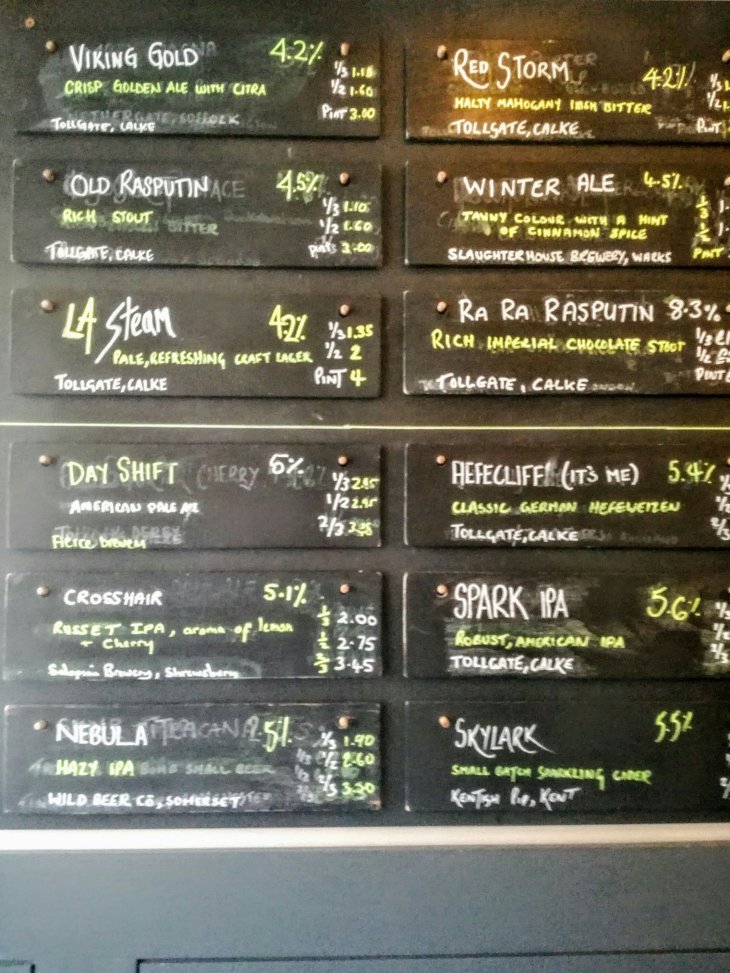 VIKING GOLD 4.2%
CRISP GOLDEN ALE WITH CITRA
1/3 1.10
1/2 1.60
PINT 3.00
TOLLGATE, CALKE
RED STORM 4.2%
MALTY MAHOGANY IRISH BITTER
TOLLGATE, CALKE
OLD RASPUTIN 4.5%
RICH STOUT
1/3 1.10
1/2 1.60
PINT 3.00
TOLLGATE, CALKE
WINTER ALE 4.5%
TAWNY COLOUR WITH A HINT
OF CINNAMON SPICE
1/3
1/2
PINT
SLAUGHTERHOUSE BREWERY, WARKS
LA Steam 4.2%
PALE, REFRESHING CRAFT LAGER
1/3 1.35
1/2 2
PINT 4
TOLLGATE, CALKE
RA RA RASPUTIN 8.3%
RICH IMPERIAL CHOCOLATE STOUT
1/3
1/2
PINT
TOLLGATE, CALKE
DAY SHIFT 5%
AMERICAN PALE ALE
1/3
1/2
2/3
FIERCE
HEFECLIFF (IT'S ME) 5.4%
CLASSIC GERMAN HEFEWEIZEN
TOLLGATE, CALKE
CROSSHAIR 5.1%
RUSSET IPA, aroma of lemon
+ Cherry
1/3 2.00
1/2 2.75
2/3 3.45
Salopian Brewery, Shrewsbury
SPARK IPA 5.6%
ROBUST, AMERICAN IPA
TOLLGATE, CALKE
NEBULA 5%
HAZY IPA
1/3 1.90
1/2 2.60
2/3 3.30
WILD BEER CO, SOMERSET
SKYLARK 5.5%
SMALL BATCH SPARKLING CIDER
KENTISH PIP, KENT